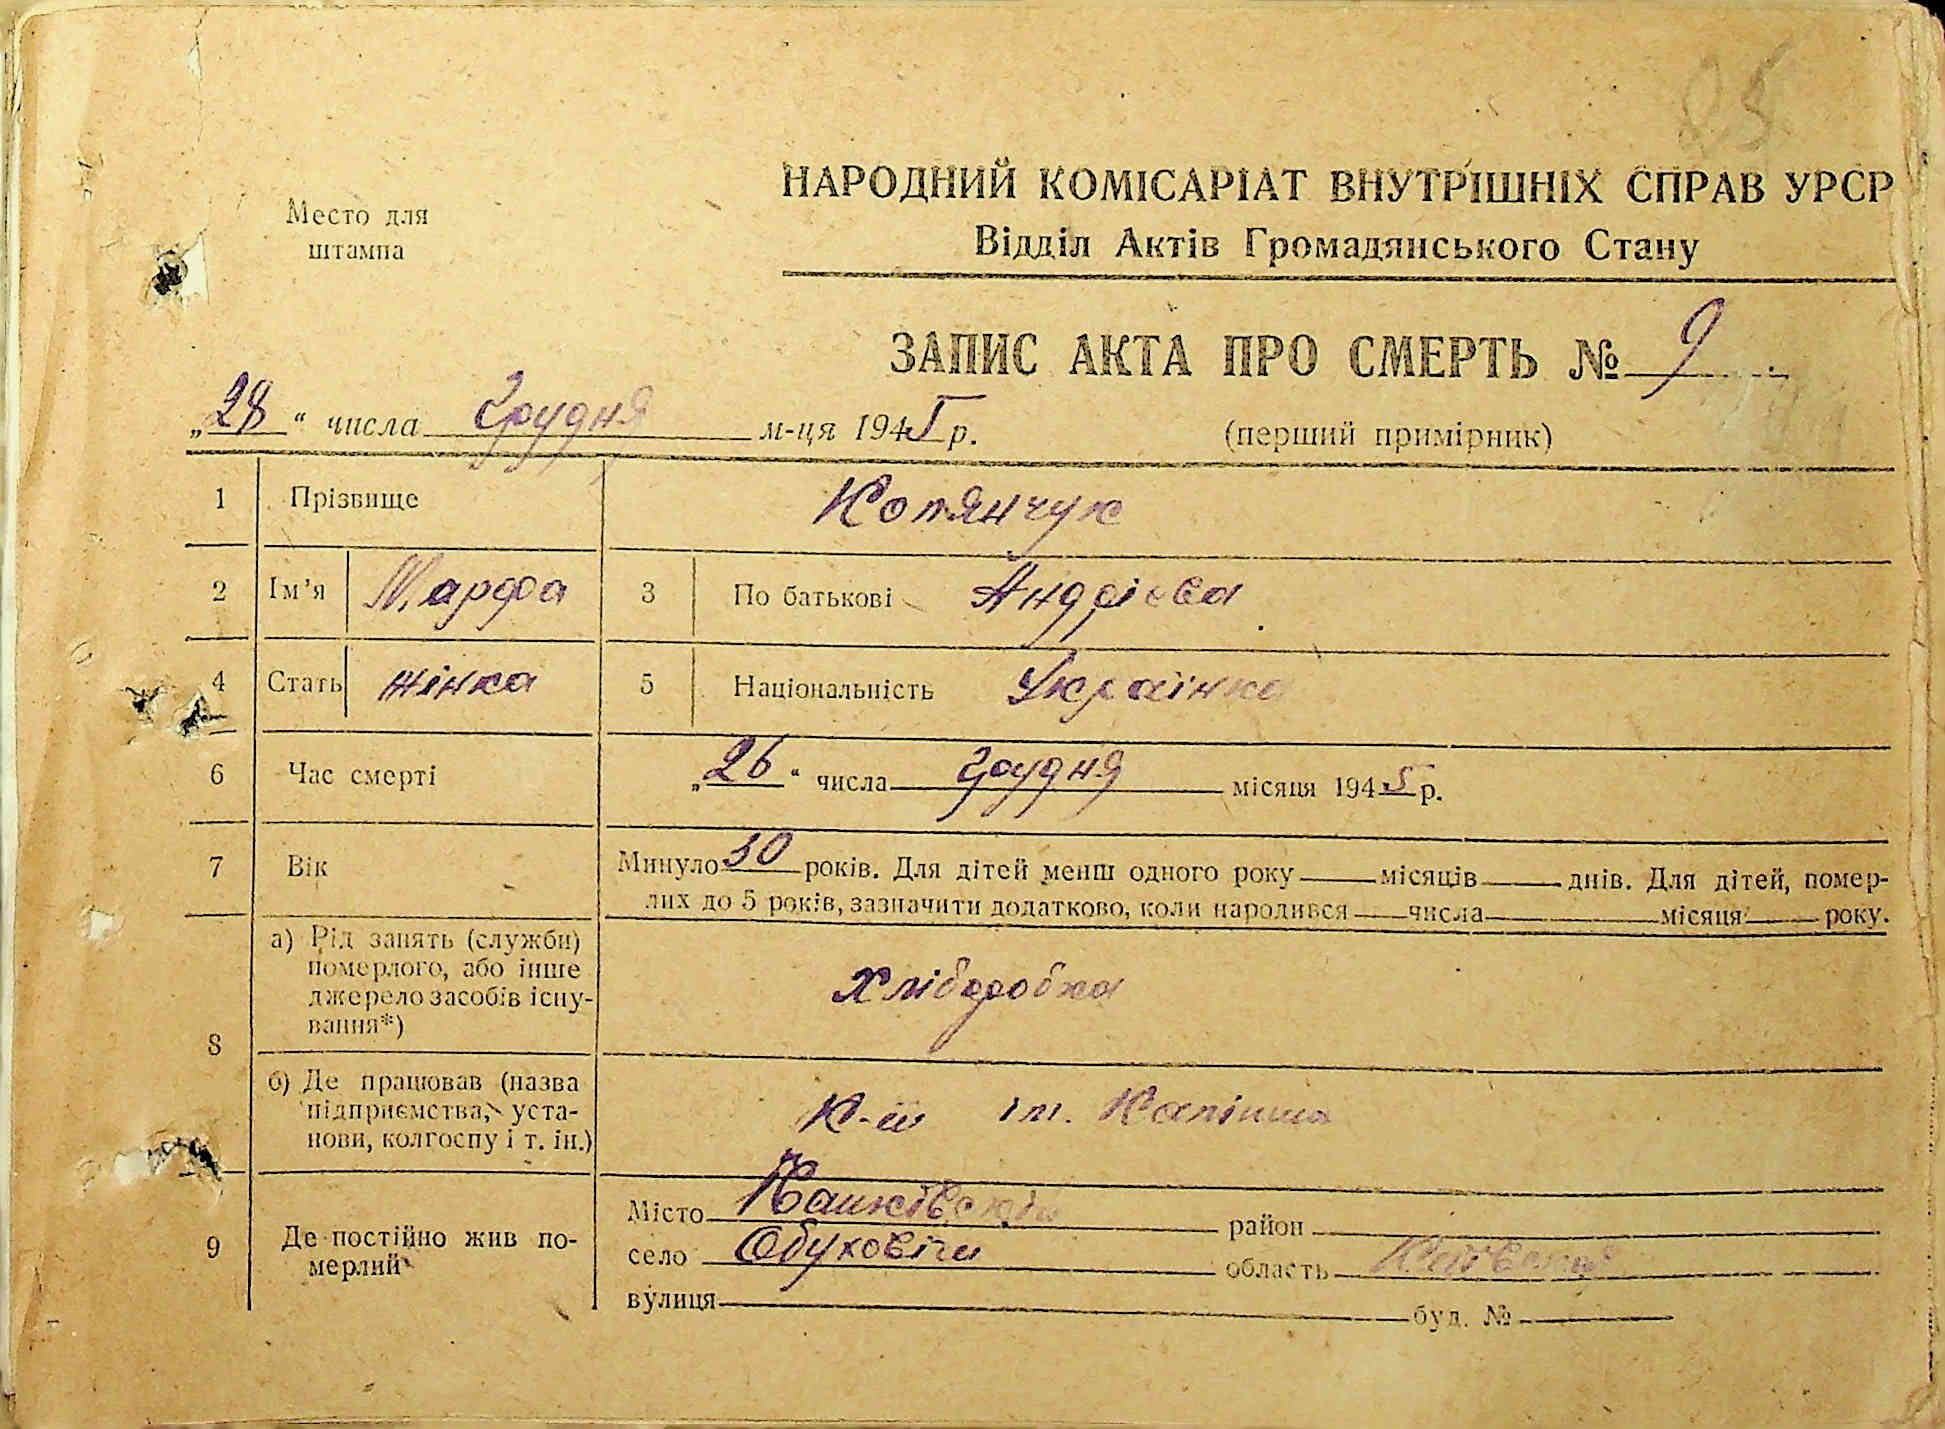 25
НАРОДНИЙ КОМІСАРІАТ ВНУТРІШНІХ СПРАВ УРСР
Место для
штампа
Відділ Актів Громадянського Стану
ЗАПИС АКТА ПРО СМЕРТЬ № 9
„28“ числа Грудня м-ця 1945 р.
(перший примірник)
1 Прізвище Котянчук
2 Ім'я Марфа 3 По батькові Андрієва
4 Стать жінка 5 Національність Українка
6 Час смерті „26“ числа Грудня місяця 1945 р.
7 Вік Минуло 30 років. Для дітей менш одного року місяців днів. Для дітей, помер-
лих до 5 років, зазначити додатково, коли народився числа місяця року.
8 а) Рід занять (служби)
померлого, або інше
джерело засобів існу-
вання*)
Хліборобка
б) Де працював (назва
підприємства, уста-
нови, колгоспу і т. ін.)
К-п ім. Калініна
9 Де постійно жив по-
мерлий
Місто район
село Обуховічи область Київська
вулиця буд. №